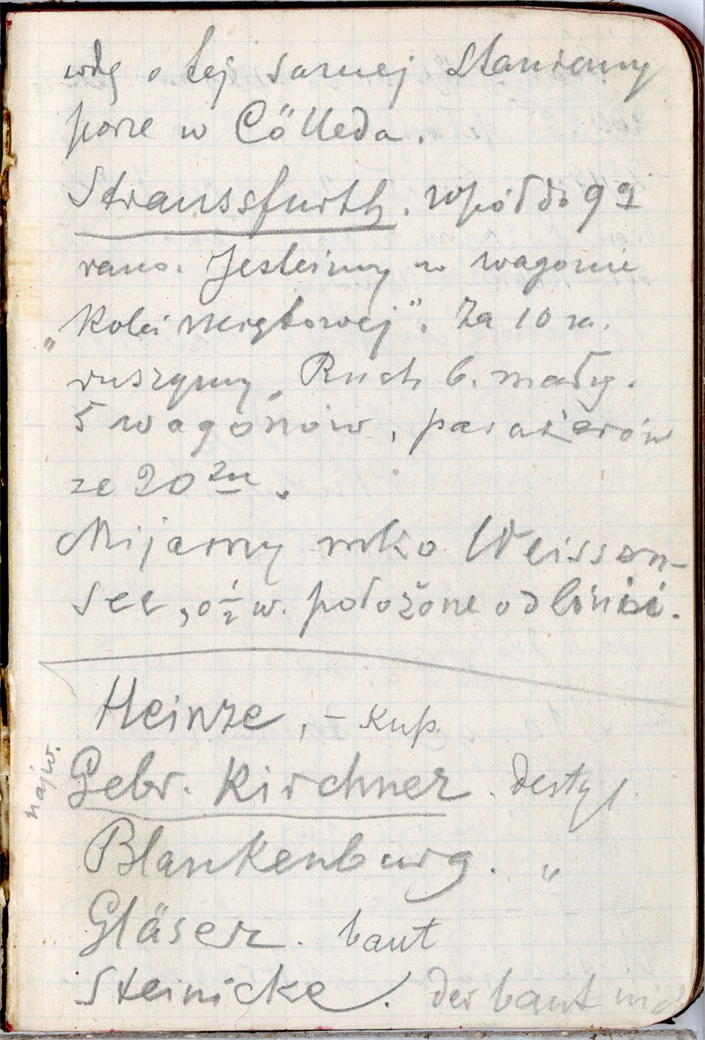 wdg o tej samej staniemy
porze w Cölleda.
Straussfurth. wpół do 9ej
rano. Jesteśmy w wagonie
„Kolei miętowej”. Za 10 m.
ruszymy. Ruch b. mały.
5 wagonów, pasażerów
ze 20 zu.
Mijamy mko Weissen-
see, o ½ w. położone od linii.
Heinze, – kup.
najw.
Gebr. Kirchner. destyl.
Blankenburg. „
Gläser. baut
Steinicke. der baut